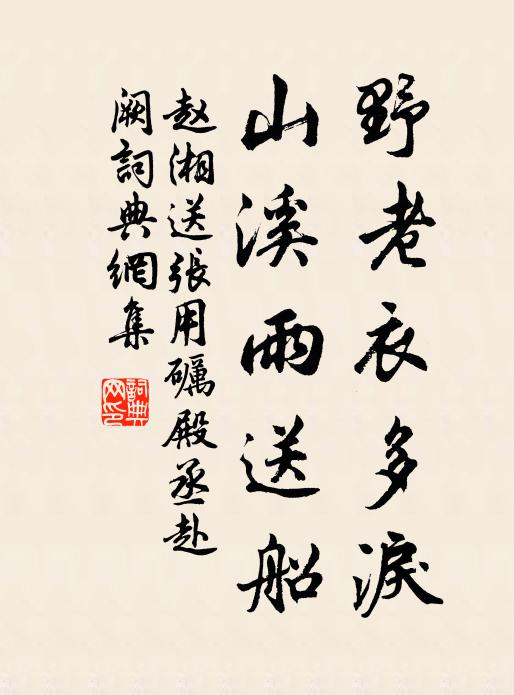 野老衣多淚
山溪雨送船
赵湘送張用礪殿丞赴
阙詞典網集
詞典
网印